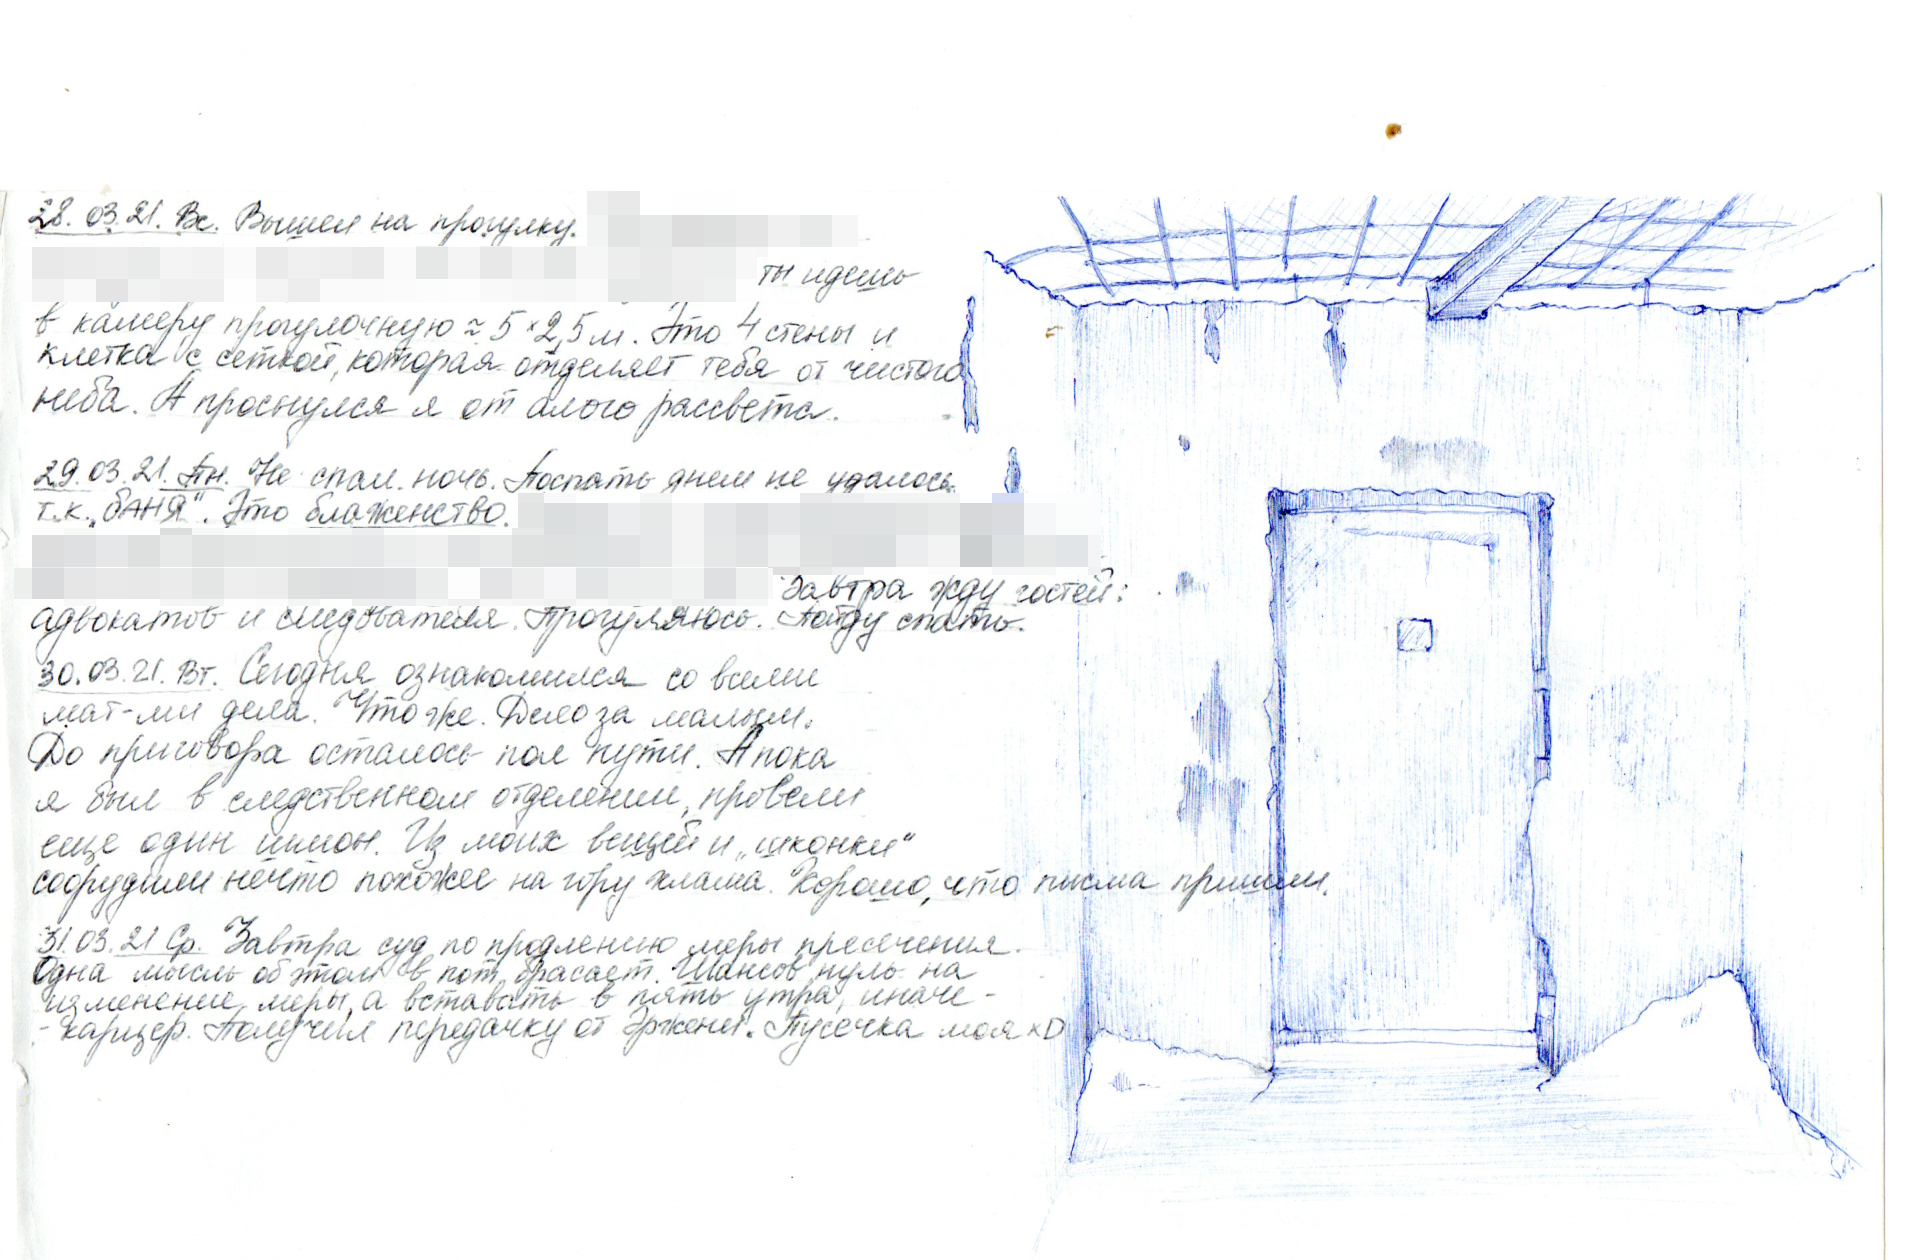 28.03.21. Вс. Вышел на прогулку.
ты идешь
в камеру прогулочную ≈ 5 × 2,5 м. Это 4 стены и
клетка с сеткой, которая отделяет тебя от чистого
неба. А проснулся я от алого рассвета.
29.03.21. Пн. Не спал ночь. Поспать днем не удалось
т.к. „БАНЯ". Это блаженство.
Завтра жду гостей:
адвокатов и следователя. Прогуляюсь. Пойду спать.
30.03.21. Вт. Сегодня ознакомился со всеми
мат-ми дела. Что же. Дело за малым.
До приговора осталось пол пути. А пока
я был в следственном отделении, провели
еще один шмон. Из моих вещей и „шконки"
соорудили нечто похожее на гору хлама. Хорошо, что письма пришли.
31.03.21 Ср. Завтра суд по продлению меры пресечения.
Одна мысль об этом в пот бросает. Шансов нуль на
изменение меры, а вставать в пять утра, иначе -
- карцер. Получил передачку от Эржены. Пусечка моя xD